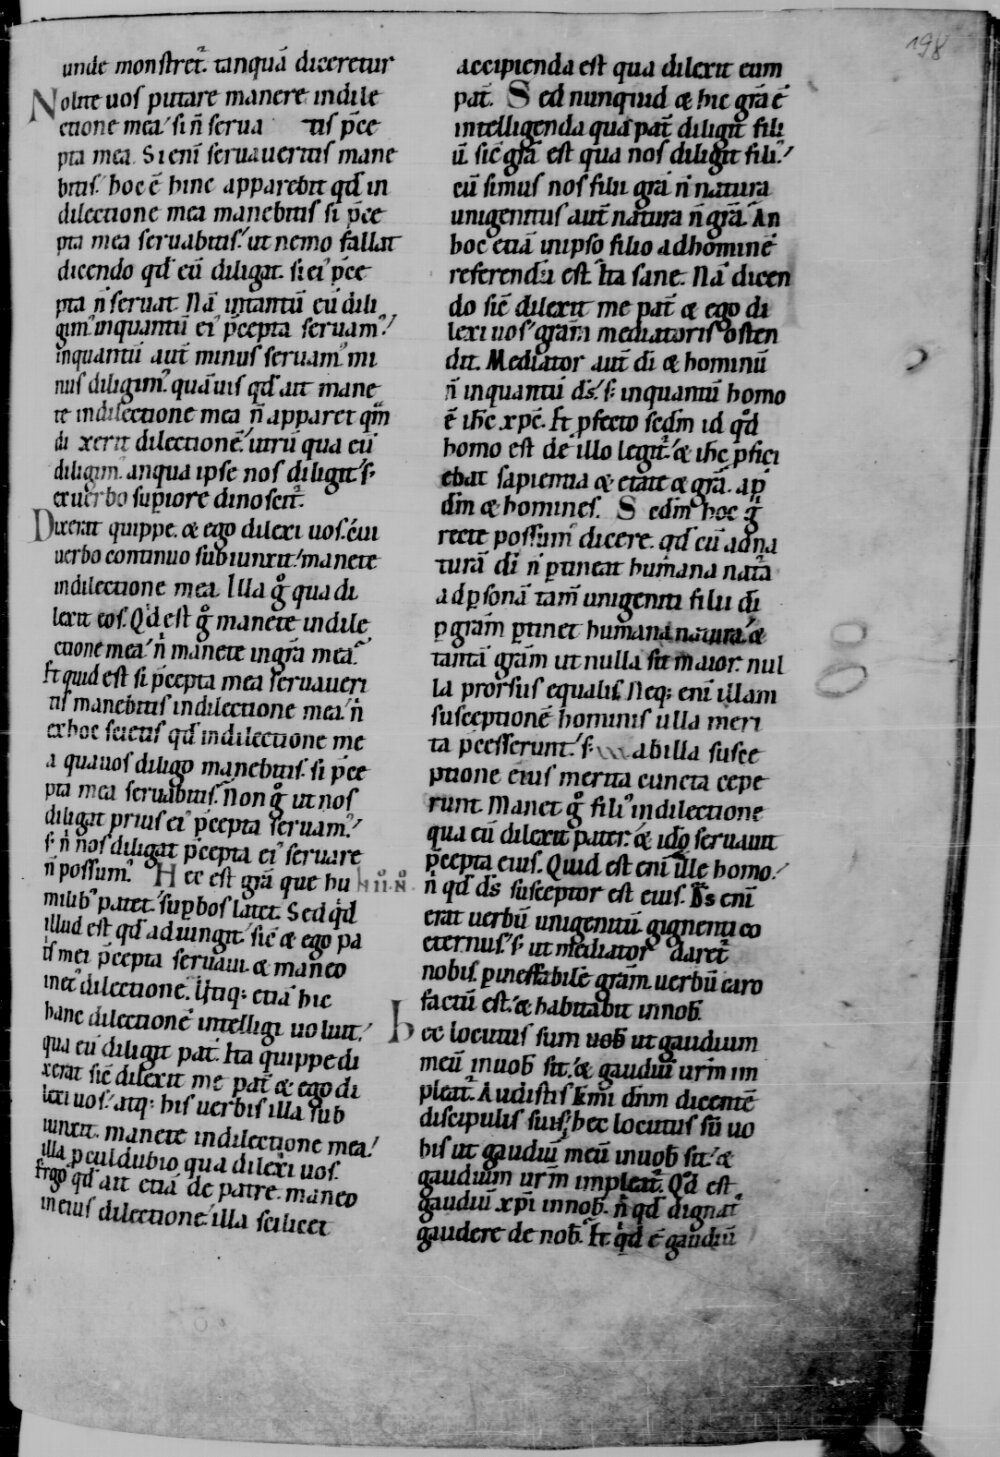 198
unde monstret᷑. tanquā diceretur
Nolite uos putare manere in dile
ctione mea / si n̄ serua tis p̄ce
pta mea. Si eni᷑ seruaueritis mane
bitis.' hoc ē hinc apparebit qd̄ in
dilectione mea manebitis si p̄ce
pta mea seruabitis.' ut nemo fallat
dicendo qd̄ eū diligat. si ei᷒ p̄ce
pta n̄ seruat. Nā intantū eū dili
gim᷒ inquantū ei᷒ p̄cepta seruam᷒.'
inquantū aut̄ minus seruam᷒ mi
nus diligim᷒. quāuis qd̄ ait mane
te in dilectione mea n̄ apparet qm̄
di xerit dilectionē.' utrū qua eū
diligim᷒. an qua ipse nos diligit.' s᷒
ex uerbo supiore dinoscit᷑.
Dixerat quippe. & ego dilexi uos. cui
uerbo continuo subiunxit.' manete
in dilectione mea. Illa gͦ qua di
lexit eos. Qd̓ est gͦ manete in dile
ctione mea.' n̓ manete in grā mea.
Et quid est si p̄cepta mea seruaueri
tis manebitis in dilectione mea.' n̓
ex hoc scietis qd̄ in dilectione me
a qua uos diligo manebitis. si p̄ce
pta mea seruabitis. Non gͦ ut nos
diligat prius ei᷒ p̄cepta seruam᷒.'
s᷒ n̓ nos diligat p̄cepta ei᷒ seruare
n̄ possum᷒. Hec est grā que hu
milib᷒ patet.' supbos latet. Sed qd̓
illud est qd̄ adiungit.' sic̄ & ego pa
tis mei p̄cepta seruaui. & maneo
in ei᷒ dilectione. Utiq; etiā hic
hanc dilectionē intelligi uoluit.'
qua eū diligit pat̄. Ita quippe di
xerat sic̄ dilexit me pat̄ & ego di
lexi uos.' atq; his uerbis illa sub
iunxit. manete in dilectione mea.'
illa pculdubio qua dilexi uos.
Ergo qd̄ ait etiā de patre. maneo
in eius dilectione.' illa scilicet
accipienda est qua dilexit eum
pat̄. Sed nunquid & hic grā ē
intelligenda qua pat̄ diligit fili
ū. sic̄ grā est qua nos diligit fili᷒.'
cū simus nos filii grā n̄ natura
unigenitus aut̄ natura n̄ grā. An
hoc etiā in ipso filio ad hominē
referendū est. Ita sane. Nā dicen
do sic̄ dilexit me pat̄ & ego di
lexi uos.' grām mediatoris osten
dit. Mediator aut̄ di̅ & hominū
n̄ inquantū ds̄.' s᷒ inquantū homo
ē ihc̄ xpc̄. Et pfecto scdm̄ id qd̓
homo est de illo legit᷑.' & ihc̄ pfici
ebat sapientia & etate & grā. ap̄
dm̄ & homines. Scdm̄ hoc gͦ
recte possum᷒ dicere. qd̄ cū ad na
turā di̅ n̄ ptineat humana natā
ad psonā tam̄ unigeniti filii di̅
p grām ptinet humana natura.' &
tantā grām ut nulla sit maior. nul
la prorsus equalis. Neq; eni᷑ illam
susceptionē hominis ulla meri
ta p̄cesserunt.' s᷒ ab illa susce
ptione eius merita cuncta cepe
runt. Manet gͦ fili᷒ in dilectione
qua eū dilexit pater. & idͦ seruauit
p̄cepta eius. Quid est eni᷑ ille homo.'
n̓ qd̄ ds̄ susceptor est eius. Ds̄ eni᷑
erat uerbū unigenitū. gignenti co
eternus.' s᷒ ut mediator daret᷑
nobis. p ineffabilē grām uerbū caro
factū est.' & habitabit in nob̄.
hec locutus sum uob̄ ut gaudium
meū in uob̄ sit.' & gaudiū urm̄ im
pleat᷑. Audistis kmi̅ dn̄m dicentē
discipulis suis.' hec locutus sū uo
bis ut gaudiū meū in uob̄ sit.' &
gaudium urm̄ impleat᷑. Qd̓ est
gaudiū xpi̅ in nob̄. n̓ qd̄ dignat᷑
gaudere de nob̄. Et qd̓ ē gaudiū